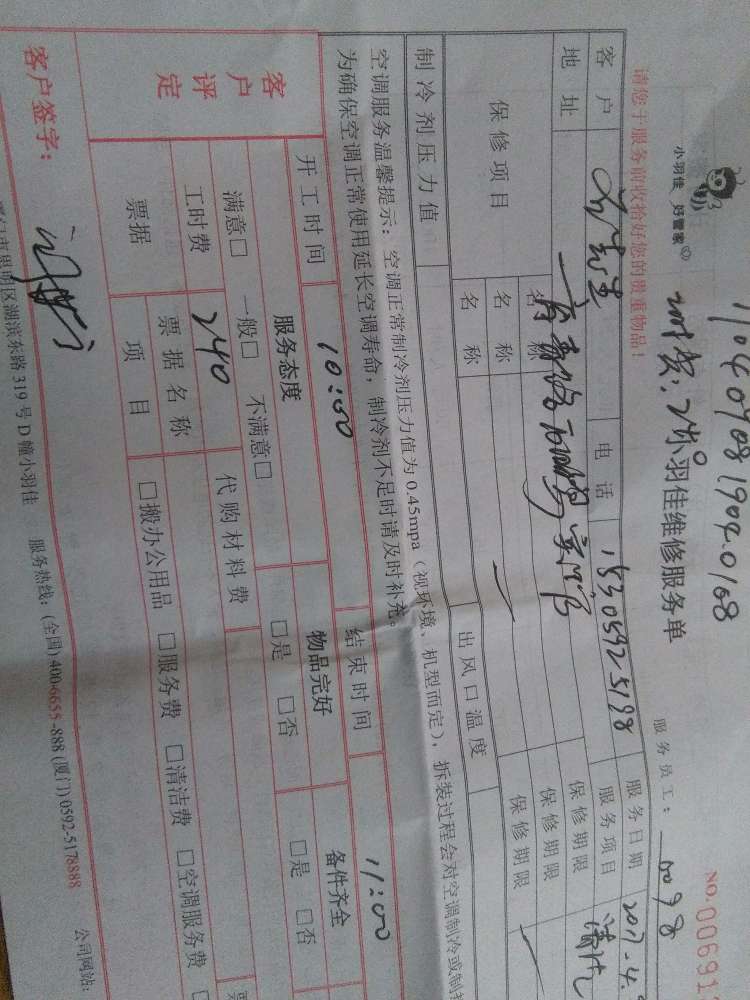 1104070819040108
小羽佳 好管家
小羽佳维修服务单
NO.00691
服务员工： 0098
请您于服务前收拾好您的贵重物品！
客户 电话 15305925198 服务日期 2017-4.
地址 服务项目 清洗
保修项目 名称 保修期限
名称 保修期限
名称 保修期限
制冷剂压力值 出风口温度
空调服务温馨提示：空调正常制冷剂压力值为0.45mpa（视环境、机型而定），拆装过程会对空调制冷或制
为确保空调正常使用延长空调寿命，制冷剂不足时请及时补充。
开工时间 10:00 结束时间 11:00
客户评定 服务态度 物品完好 备件齐全
满意□ 一般□ 不满意□ □是 □否 □是 □否
工时费 240 代购材料费
票据 票据名称 票
项目 □搬办公用品 □服务费 □清洁费 □空调服务费
客户签字：
门市思明区湖滨东路319号D幢小羽佳 服务热线：(全国)400-6655-888 (厦门)0592-5178888 公司网站：